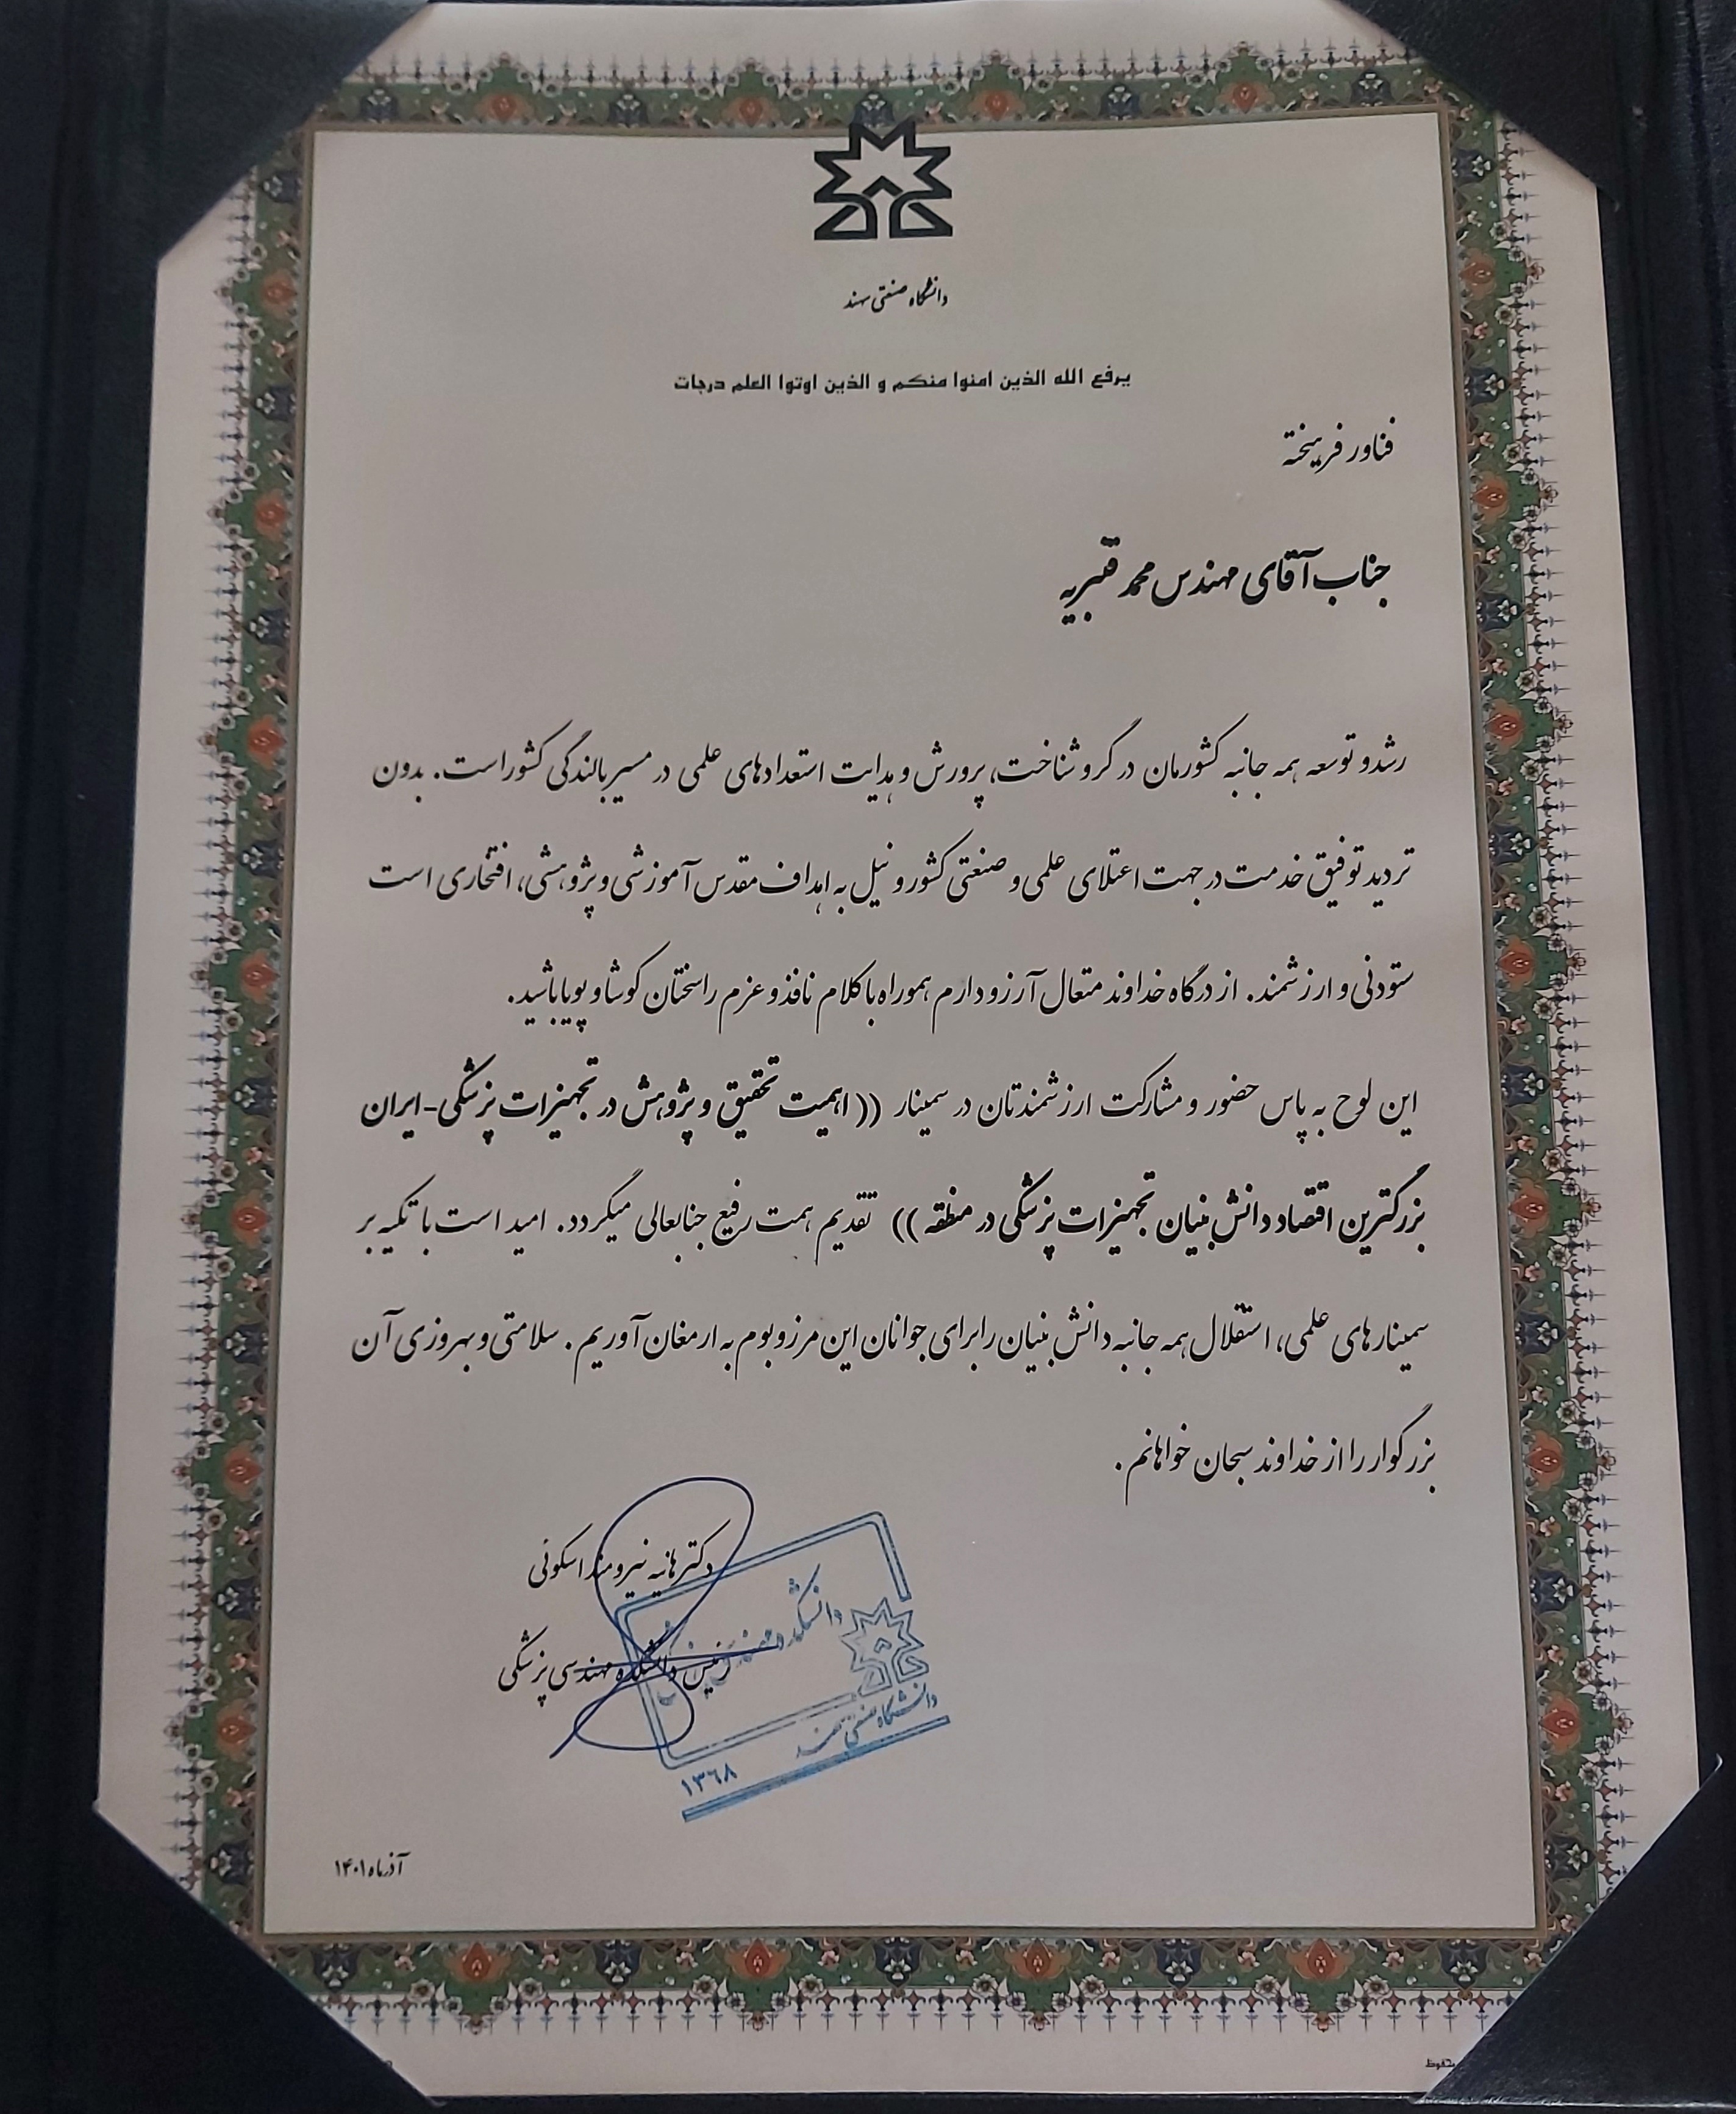 دانشگاه صنعتی سهند
یرفع الله الذین امنوا منکم و الذین اوتوا العلم درجات
فناور فرهیخته
جناب آقای مهندس محمد قنبریه
رشد و توسعه همه جانبه کشورمان در گرو شناخت، پرورش و هدایت استعدادهای علمی در مسیر بالندگی کشور است. بدون
تردید توفیق خدمت در جهت اعتلای علمی و صنعتی کشور و نیل به اهداف مقدس آموزشی و پژوهشی، افتخاری است
ستودنی و ارزشمند. از درگاه خداوند متعال آرزو دارم همواره با کلام نافذ و عزم راسختان کوشا و پویا باشید.
این لوح به پاس حضور و مشارکت ارزشمندتان در سمینار ((اهمیت تحقیق و پژوهش در تجهیزات پزشکی-ایران
بزرگترین اقتصاد دانش بنیان تجهیزات پزشکی در منطقه)) تقدیم همت رفیع جنابعالی میگردد. امید است با تکیه بر
سمینارهای علمی، استقلال همه جانبه دانش بنیان را برای جوانان این مرز و بوم به ارمغان آوریم. سلامتی و بهروزی آن
بزرگوار را از خداوند سبحان خواهانم.
دکتر هانیه نیرومند اسکوئی
رئیس دانشکده مهندسی پزشکی
دانشکده مهندسی
دانشگاه صنعتی سهند
۱۳٦۸
آذرماه ۱۴۰۱